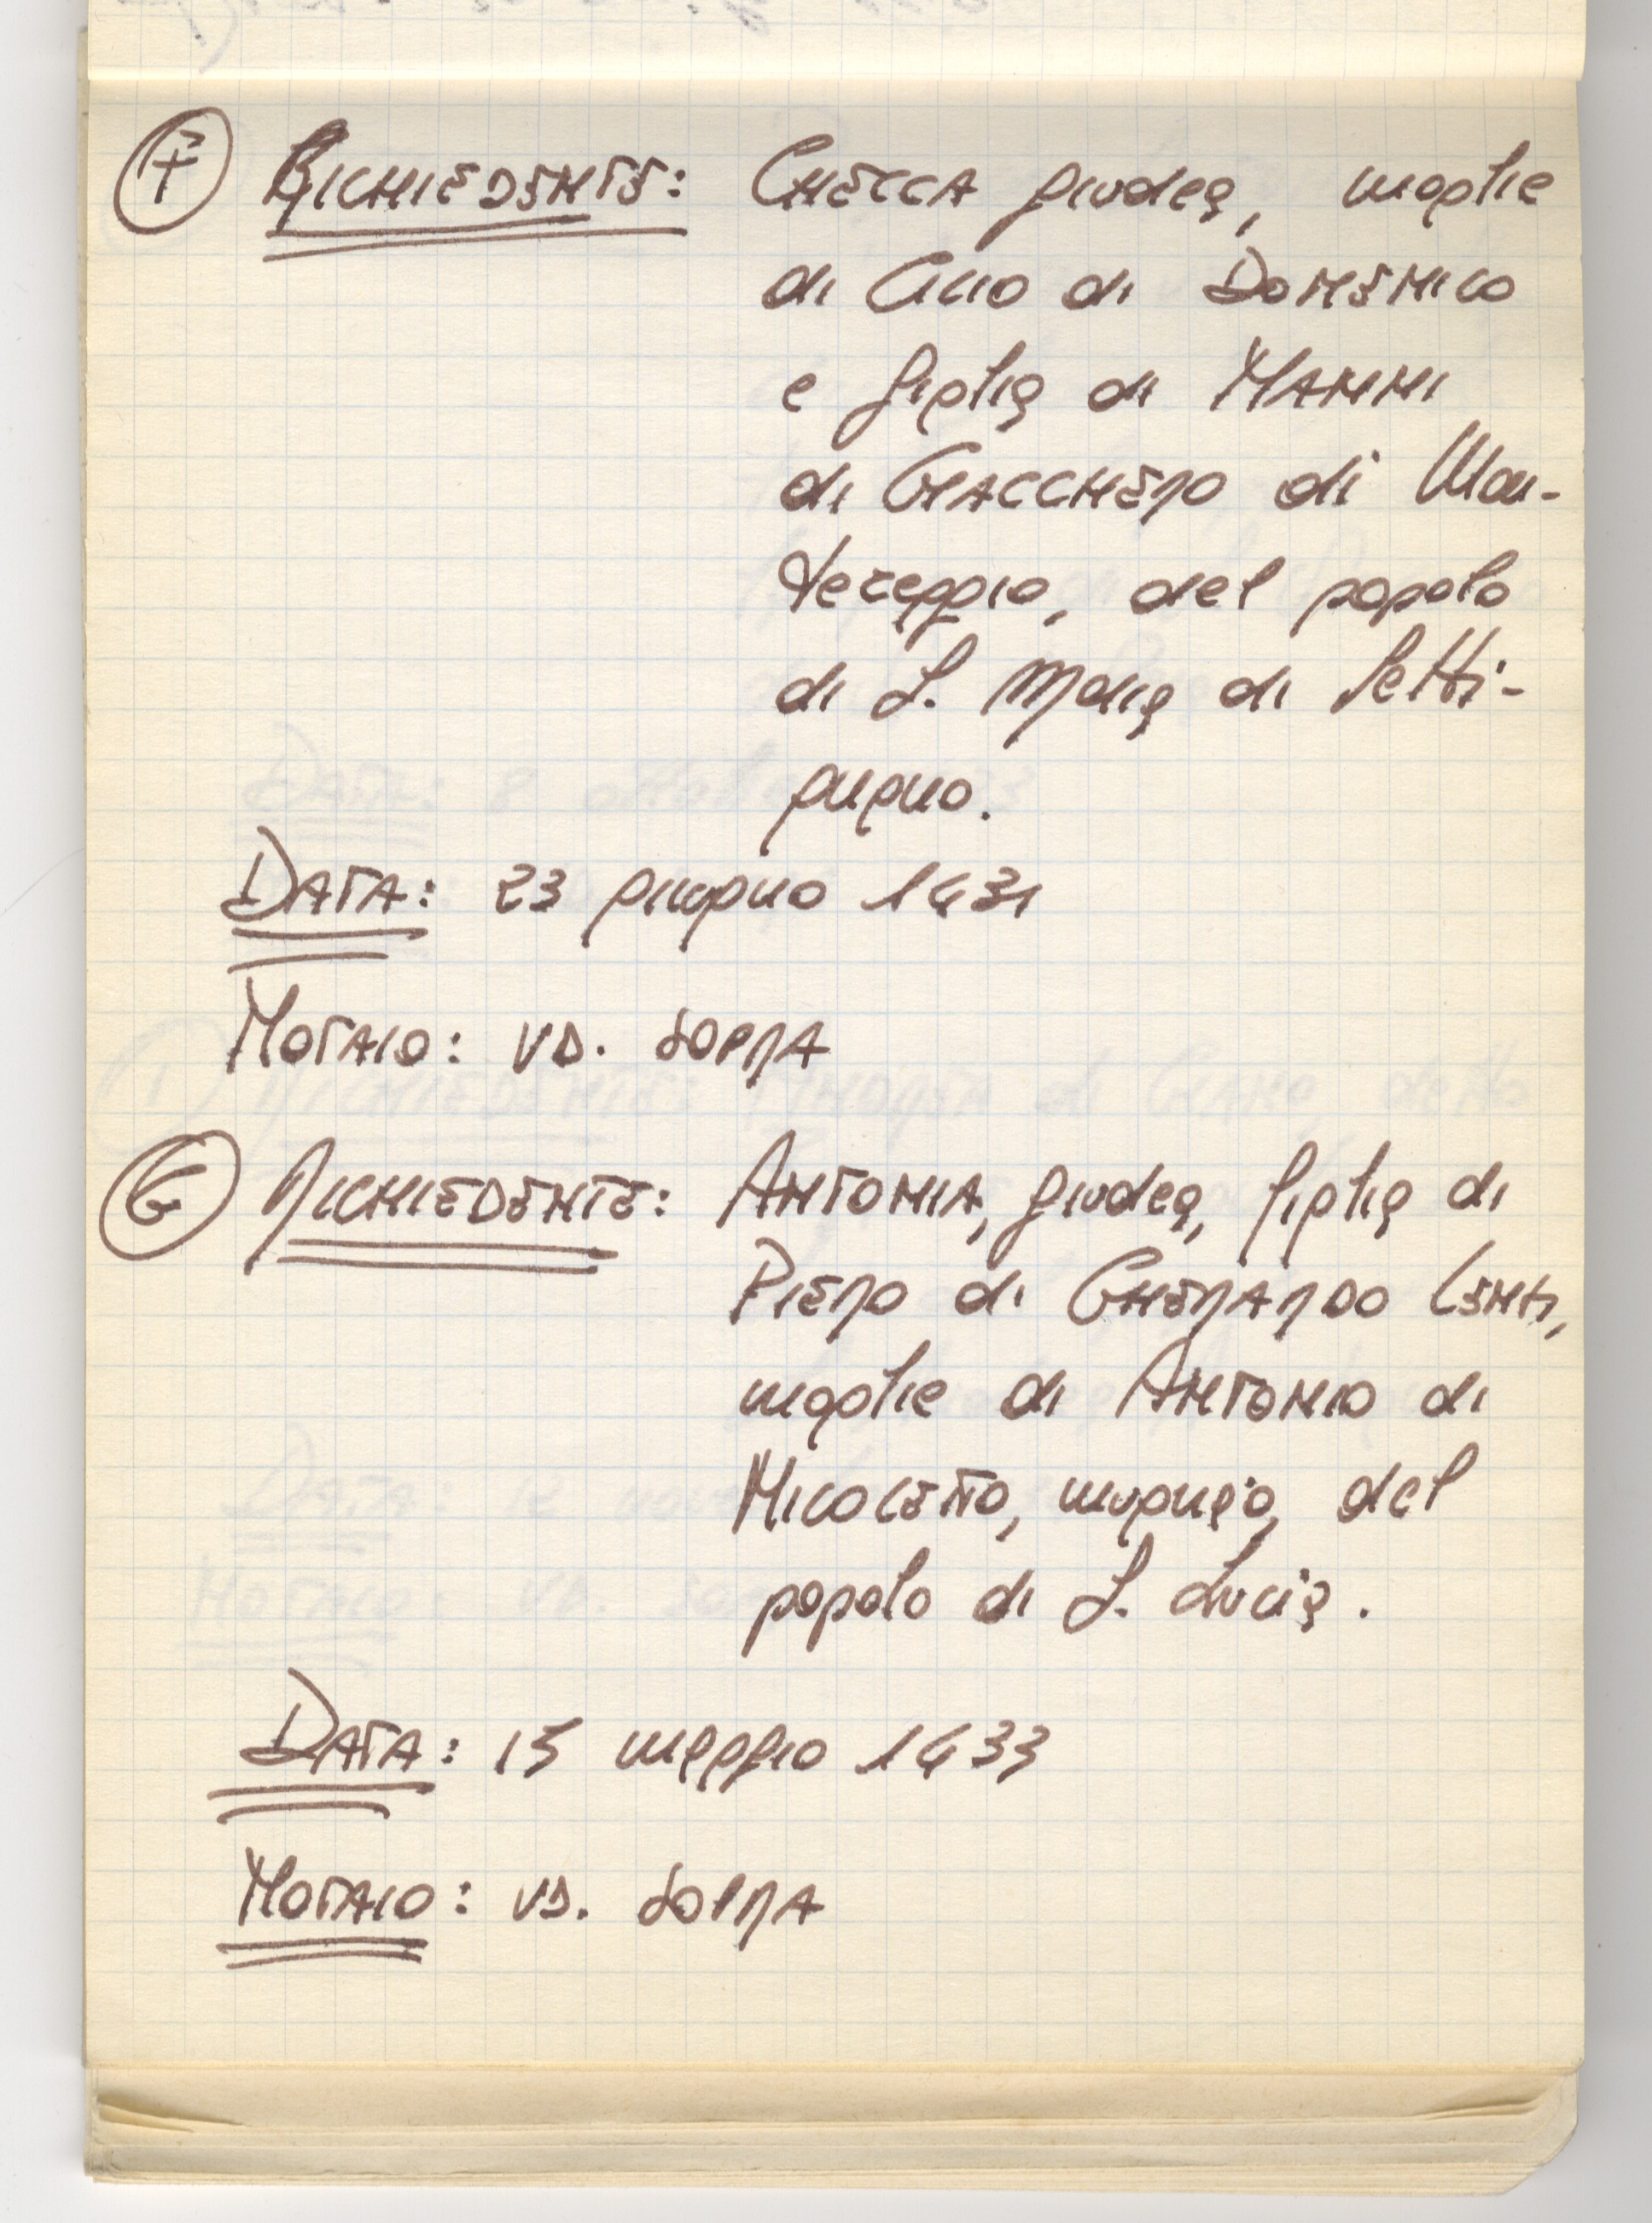 F RICHIEDENTE: CHECCA giudea, moglie
di CIUO di DOMENICO
e figlia di NANNI
di GIACCHERO di Mon-
tereggio, del popolo
di S. Maria di Setti-
gnano.
DATA: 23 giugno 1431
NOTAIO: VD. SOPRA
G RICHIEDENTE: ANTONIA, giudea, figlia di
PIERO di GHERARDO LENTI,
moglie di ANTONIO di
NICOLETTO, mugnaio, del
popolo di S. Lucia.
DATA: 15 maggio 1433
NOTAIO: VD. SOPRA